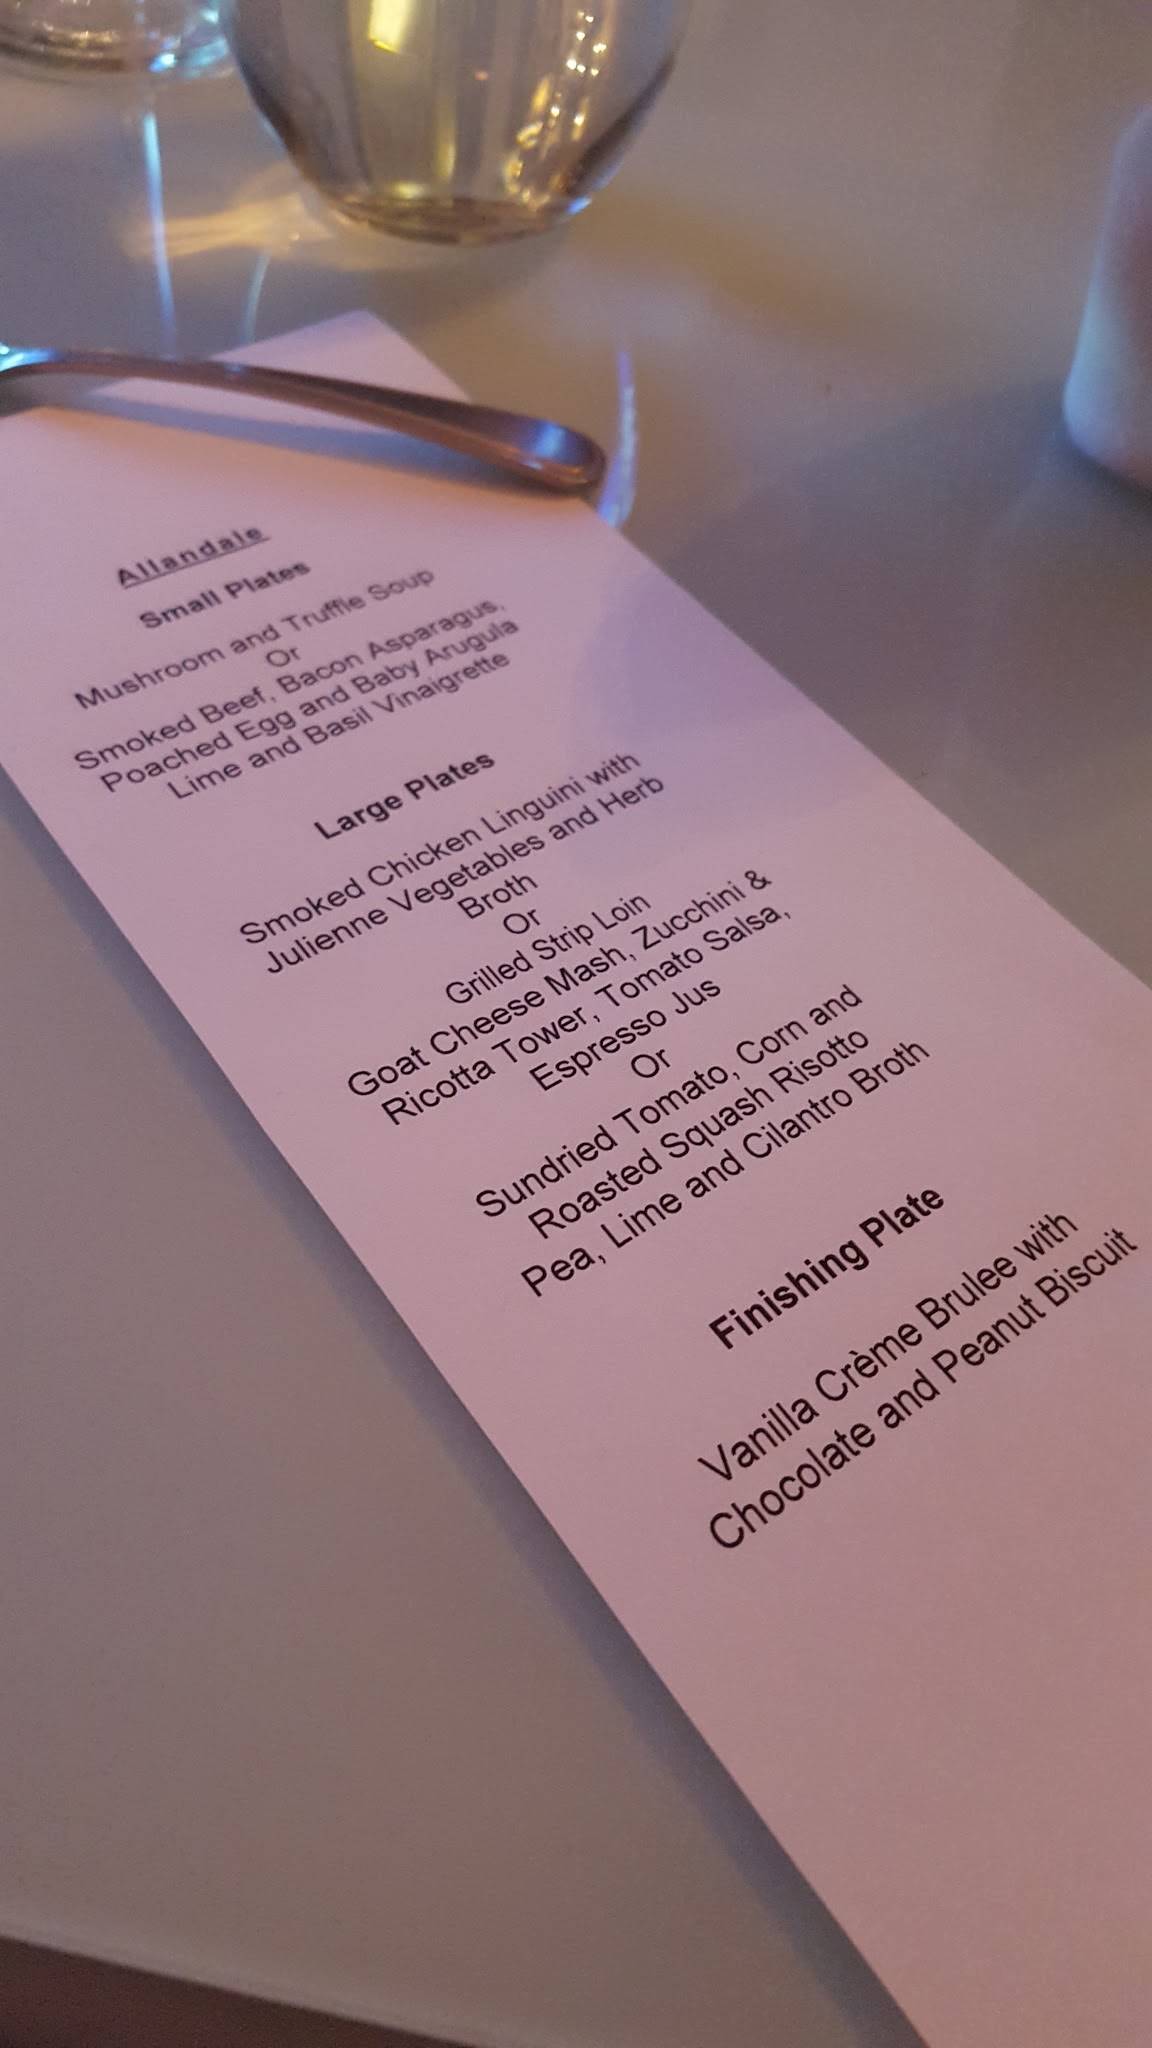 Allandale
Small Plates
Mushroom and Truffle Soup
Or
Smoked Beef, Bacon Asparagus,
Poached Egg and Baby Arugula
Lime and Basil Vinaigrette
Large Plates
Smoked Chicken Linguini with
Julienne Vegetables and Herb
Broth
Or
Grilled Strip Loin
Goat Cheese Mash, Zucchini &
Ricotta Tower, Tomato Salsa,
Espresso Jus
Or
Sundried Tomato, Corn and
Roasted Squash Risotto
Pea, Lime and Cilantro Broth
Finishing Plate
Vanilla Crème Brulee with
Chocolate and Peanut Biscuit